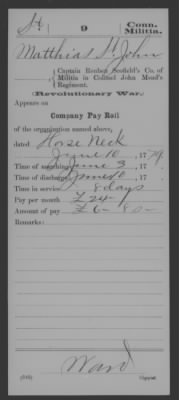 St | 9 | Conn. Militia.
Matthias St John
Captain Reuben Scofield's Co. of
Militia in Colonel John Mead's
Regiment.
(Revolutionary War.)
Appears on
Company Pay Roll
of the organization named above,
dated Horse Neck
June 10, 1779.
Time of marching June 3, 17
Time of discharge June 10, 17
Time in service 8 days
Pay per month £24
Amount of pay £6-8
Remarks:
Ward
Copyist.